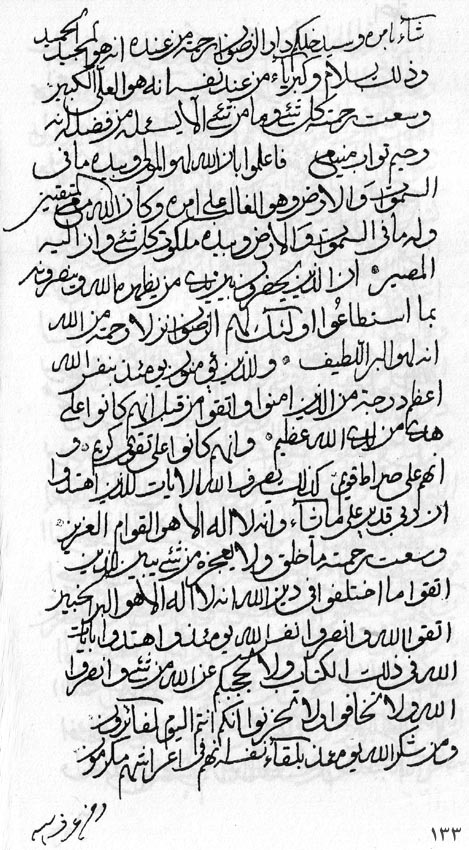 شاء امره وسيدخلكم دار الرضوان رحمة من عنده انه لهو المجيد الحميد
وذلك سلام وكبرياء من عند نفسه انه هو العلى الكبير
وسعت رحمته كل شئ وما من شئ الا يسئله من فضله انه
رحيم تواب منيع فاعلموا بان الله لهو المولى وبيده ما فى
السموات والارض وهو الغالب على امره وكان الله مع المتقين
وله ما فى السموات والارض وبيده ملكوت كل شئ وان اليه
المصير ان الذين يحضرون بين يدى من يظهره الله وينصرونه
بما استطاعوا اولئك لهم الرضوان نزلا ورحمة من الله
انه لهو البر اللطيف والذين يومئذ بنفس الله
اعظم درجة من الذين امنوا واتقوا من قبل انهم كانوا على
هدى من لدى الله عظيم وانهم كانوا على تقوى كريم و
انهم على صراط قوى كذلك يصرف الله الايات للذين اهتدوا
ان ربى قدير على ما شاء وانه لا اله الا هو القوام العزيز
وسعت رحمته ما خلق ولا يعجزه من شئ يبين للذين
اتقوا ما اختلفوا فى دين الله انه لا اله الا هو البر الخبير
اتقوا الله وانصروا نفس الله يومئذ واهتدوا بايات
الله فى ذلك الكتاب ولا يحجبكم عن الله من شئ وانصروا
الله ولا تخافوا ولا تحزنوا انكم انتم اليوم لفائزون
ومن شكر الله يومئذ بلقاء نفسه انهم فى اعراشهم مكرمون
١٣٣